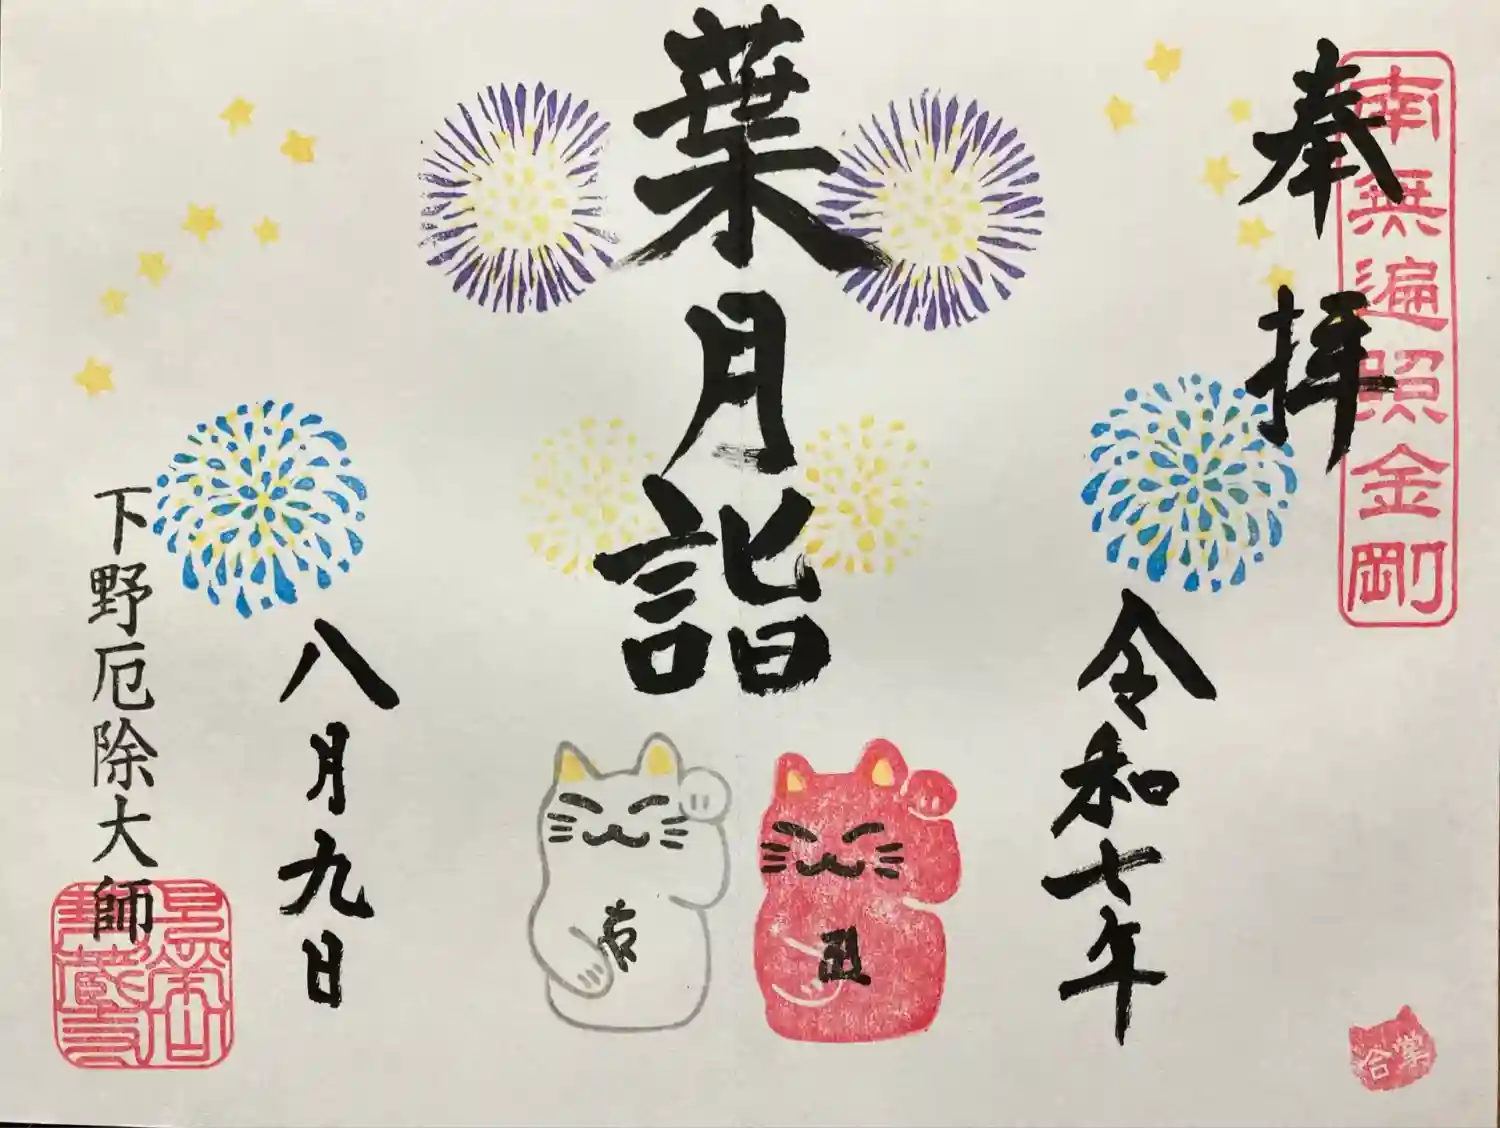 奉拝
南無遍照金剛
令和七年
葉月詣
八月九日
下野厄除大師
合掌